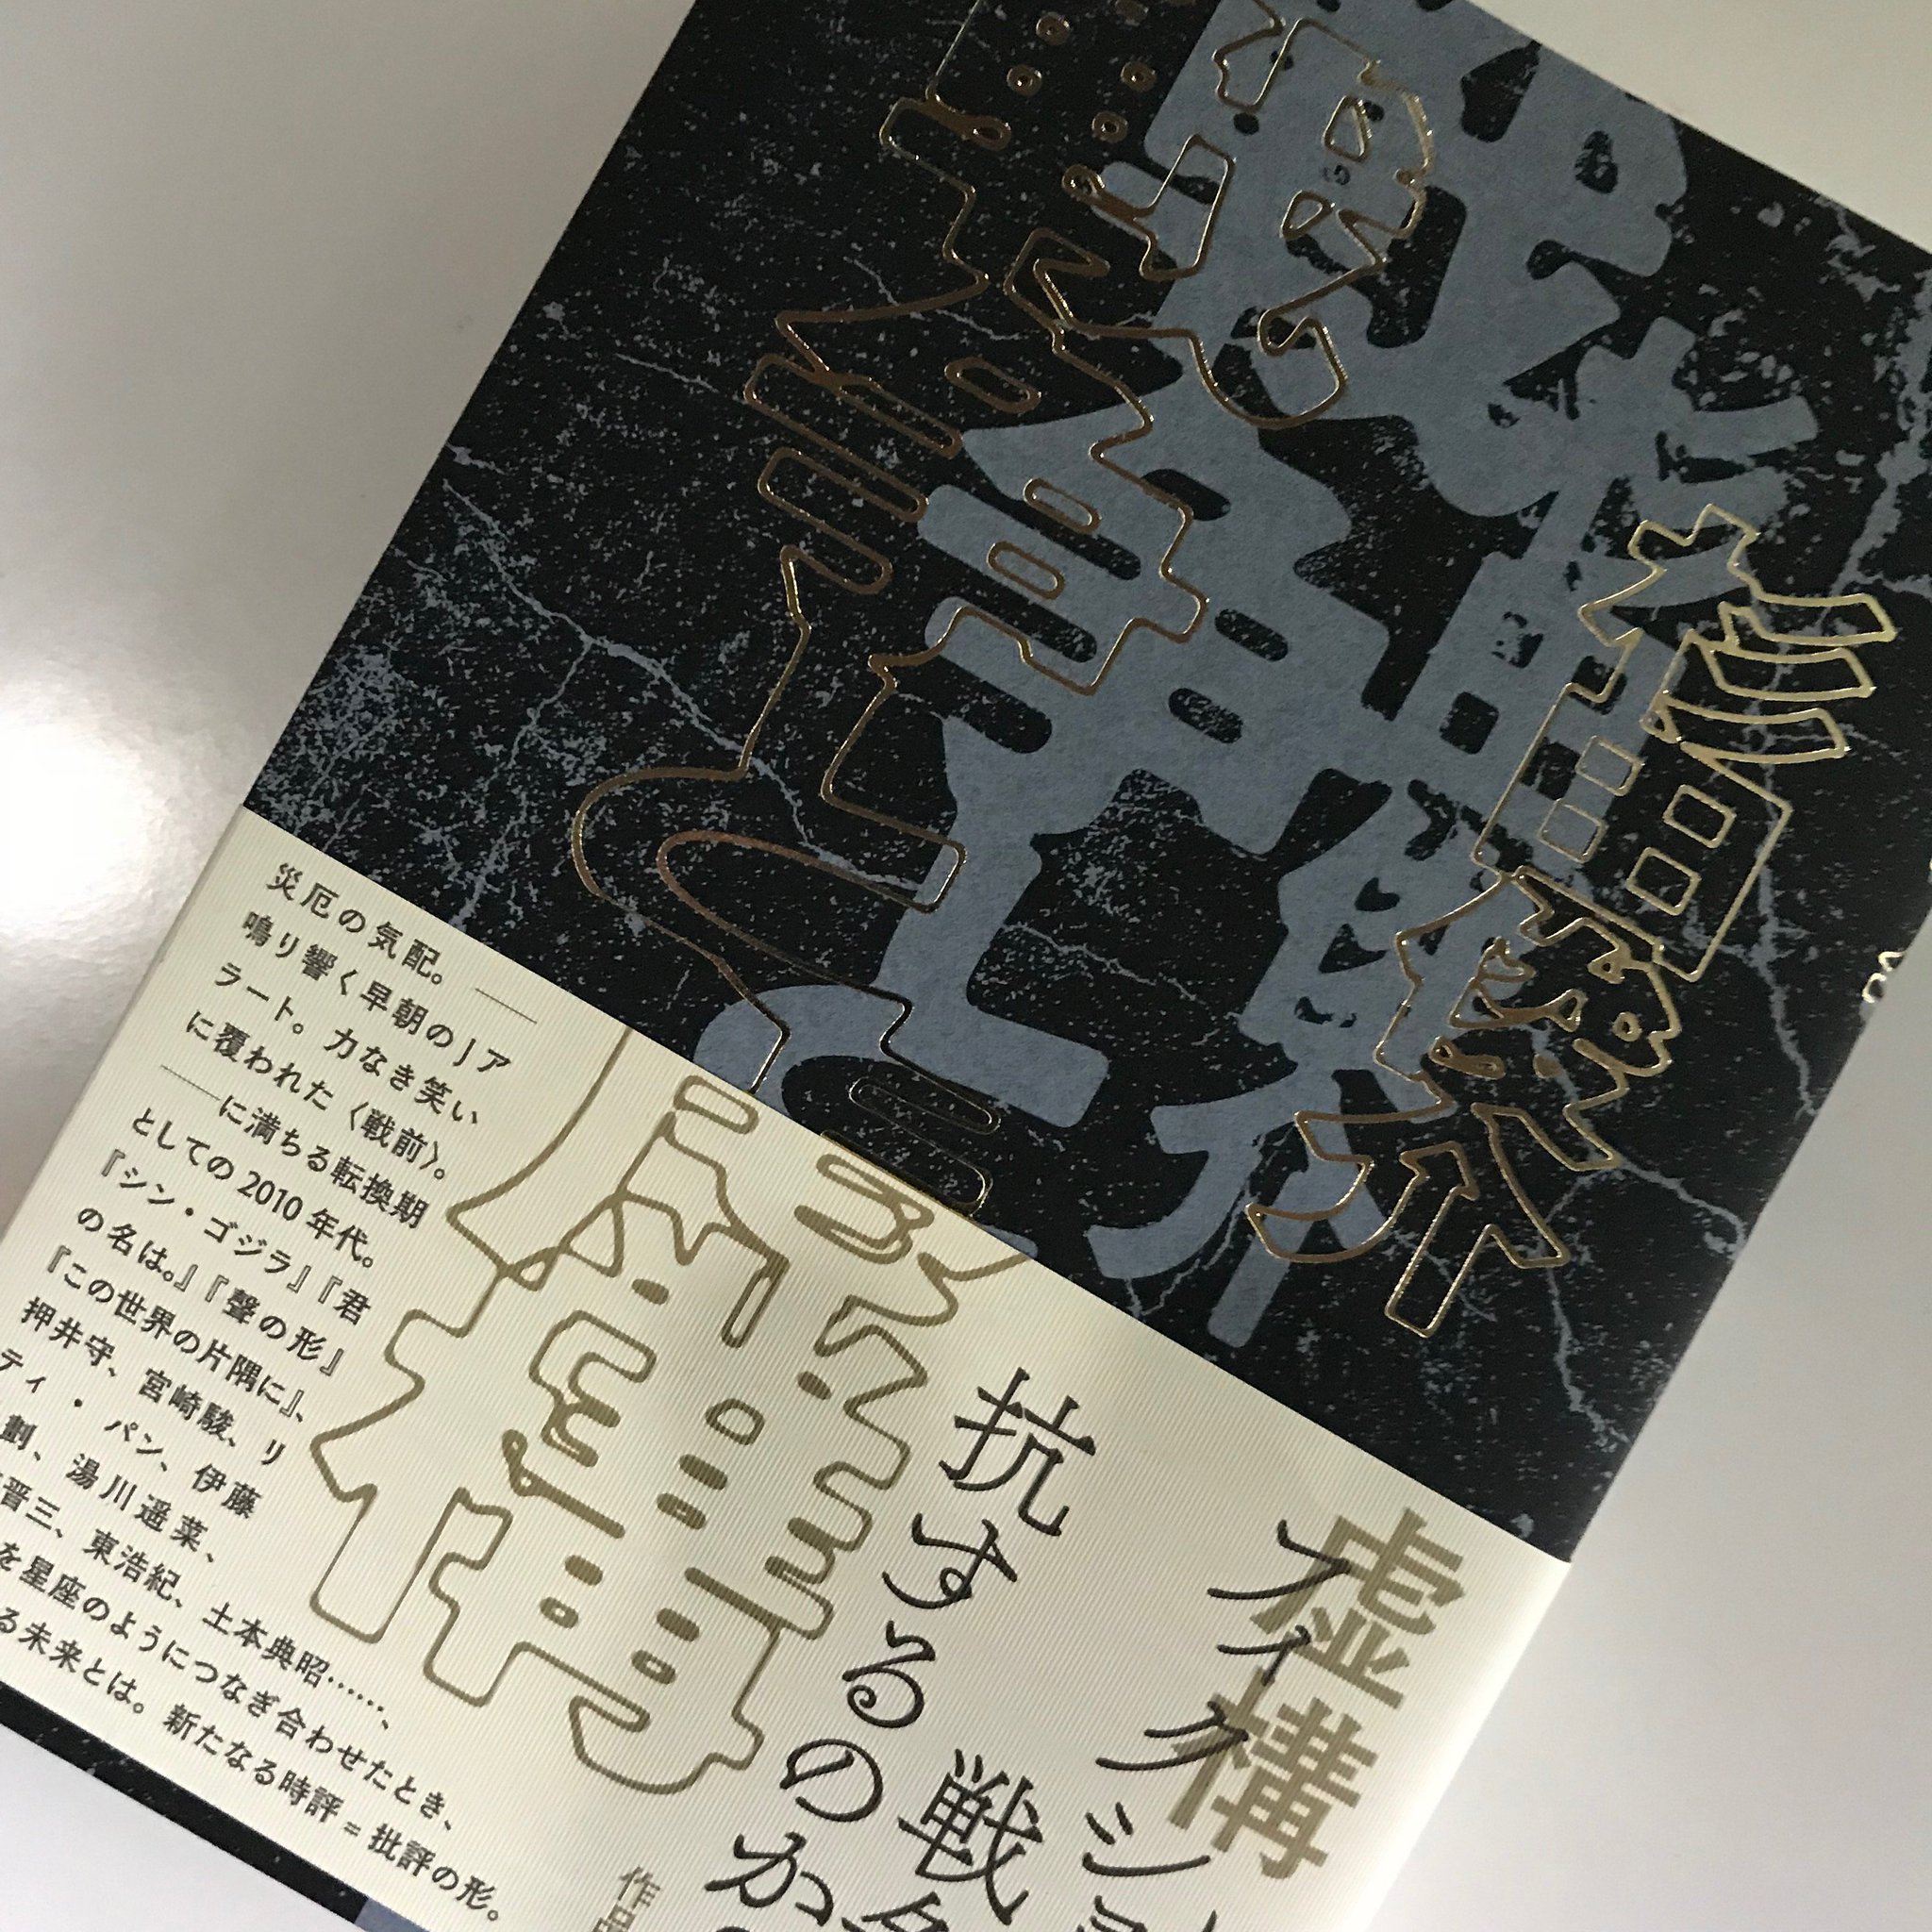 戦争と虚構
杉田俊介
虚構
フィクション
戦争
抗するのか
作品
災厄の気配。――
鳴り響く早朝のJア
ラート。力なき笑い
に覆われた〈戦前〉。
――に満ちる転換期
としての2010年代。
『シン・ゴジラ』『君
の名は。』『聲の形』
『この世界の片隅に』、
押井守、宮崎駿、リ
ティ・パン、伊藤
劃、湯川遥菜、
晋三、東浩紀、土本典昭……、
を星座のようにつなぎ合わせたとき、
る未来とは。新たなる時評=批評の形。